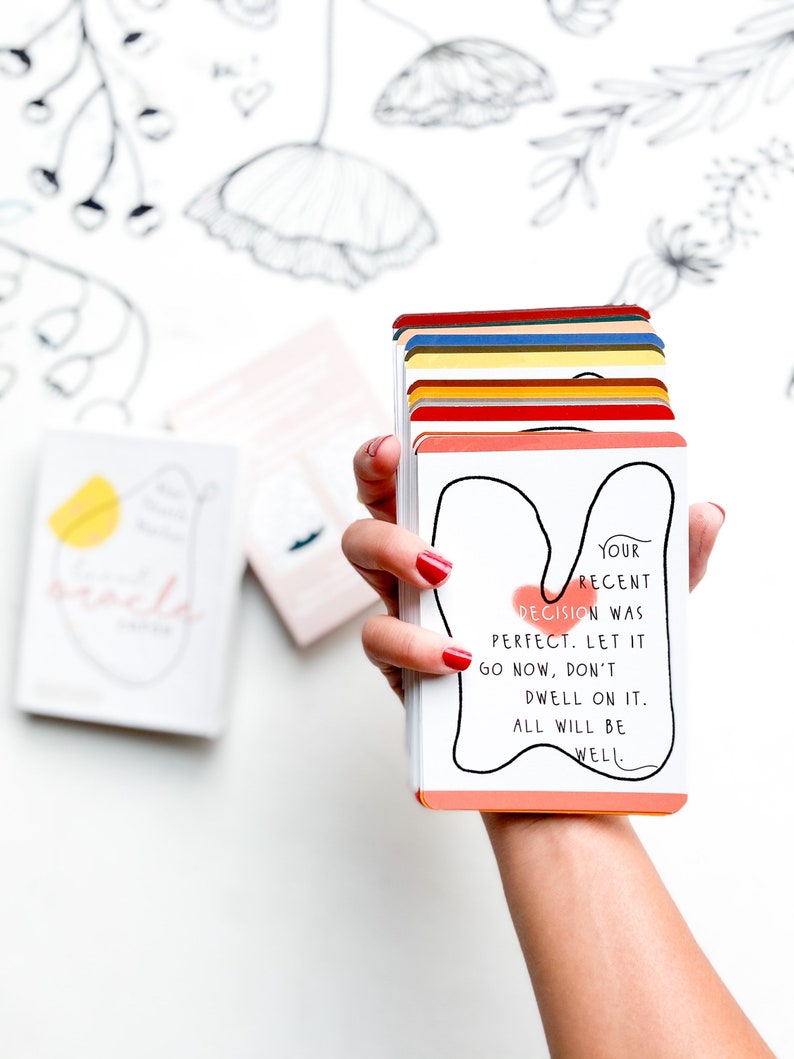 YOUR
RECENT
DECISION WAS
PERFECT. LET IT
GO NOW, DON'T
DWELL ON IT.
ALL WILL BE
WELL.
oracle